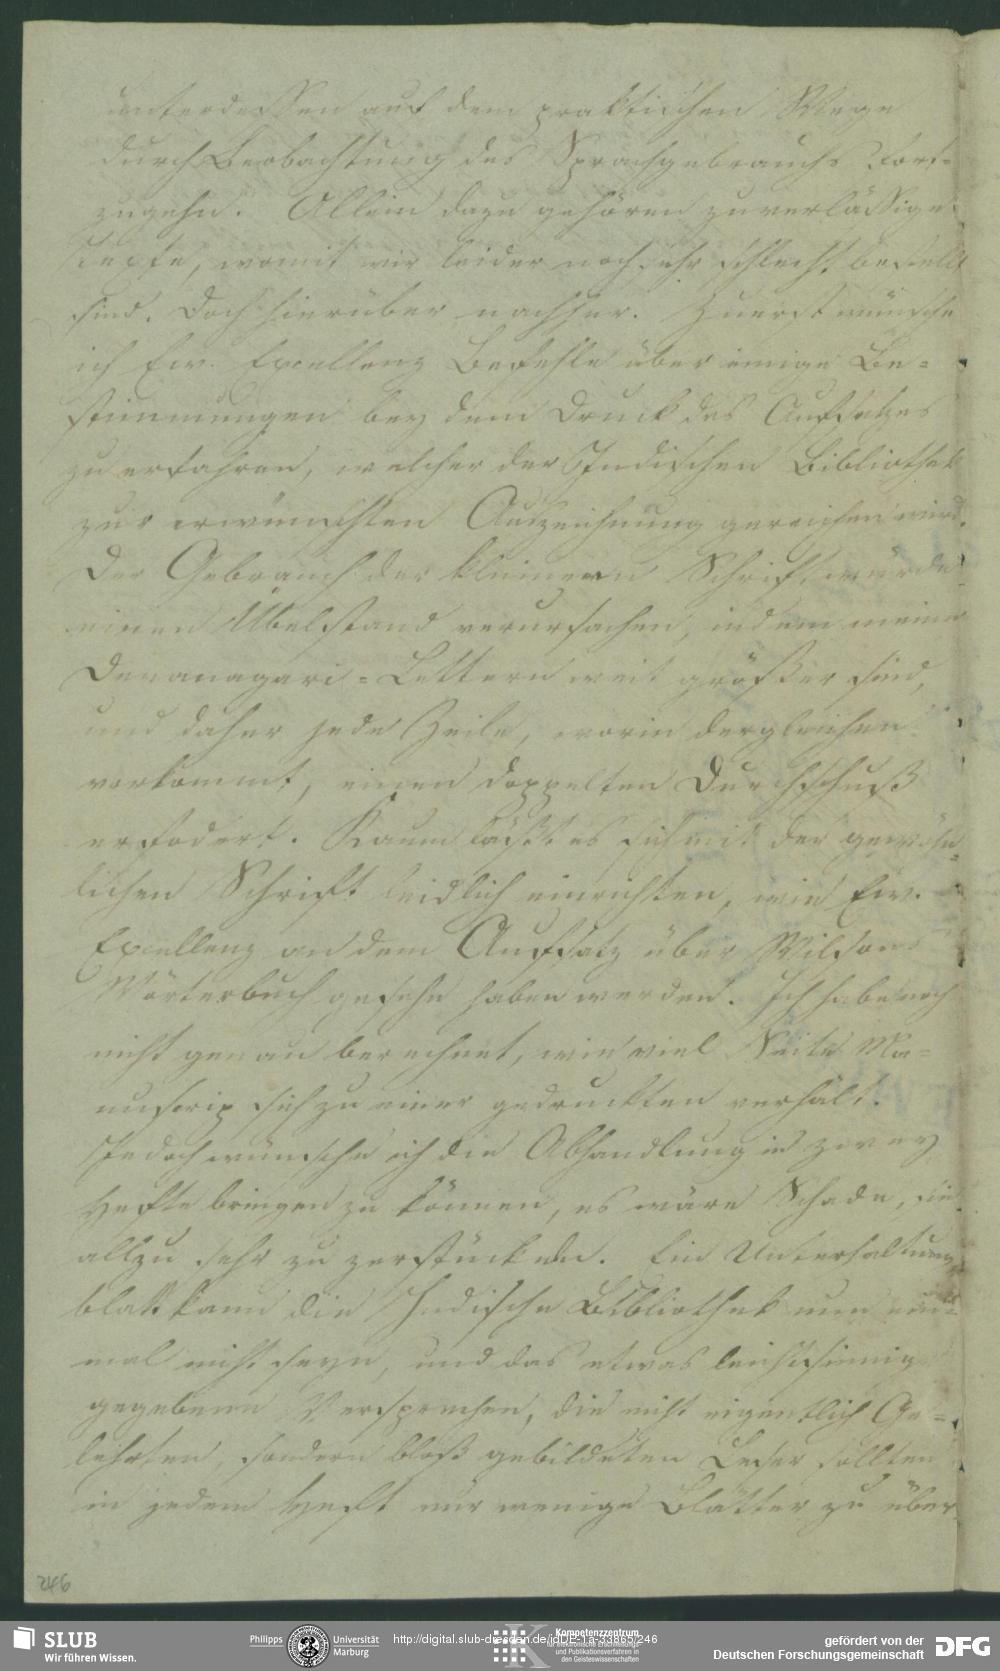 unterdessen auf dem praktischen Wege
durch Beobachtung des Sprachgebrauchs fort-
zugehn. Allein dazu gehören zuverlässige
Texte, womit wir leider noch sehr schlecht bestellt
sind. Doch hierüber nachher. Zuerst wünsche
ich Ew. Excellenz Befehle über einige Be-
stimmungen bey dem Druck des Aufsatzes
zu erfahren, welcher der Indischen Bibliothek
zur erwünschten Auszeichnung gereichen wird.
Der Gebrauch der kleineren Schrift würde
einen Übelstand verursachen, indem meine
Devanagari-Lettern weit größer sind,
und daher jede Zeile, worin dergleichen
vorkommt, einen doppelten Durchschuß
erfodert. Kaum läßt es sich mit der gewöhn-
lichen Schrift leidlich einrichten, wie Ew.
Excellenz an dem Aufsatz über Wilsons
Wörterbuch gesehn haben werden. Ich habe noch
nicht genau berechnet, wie viel Seite Ma-
nuscrip sich zu einer gedruckten verhält.
Jedoch wünsche ich die Abhandlung in zwey
Hefte bringen zu können, es wäre Schade, sie
allzu sehr zu zerstückeln. Ein Unterhaltungs-
blatt kann die Indische Bibliothek nun ein-
mal nicht seyn, und das etwas leichtsinnig
gegebene Versprechen, die nicht eigentlich Ge-
lehrten, sondern bloß gebildeten Leser sollten
in jedem Heft nur wenige Blätter zu über
246
SLUB
Wir führen Wissen.
Philipps Universität
Marburg
http://digital.slub-dresden.de/idDE-1a-33865/246
Kompetenzzentrum
für elektronische Erschließungs-
und Publikationsverfahren in
den Geisteswissenschaften
gefördert von der
Deutschen Forschungsgemeinschaft
DFG